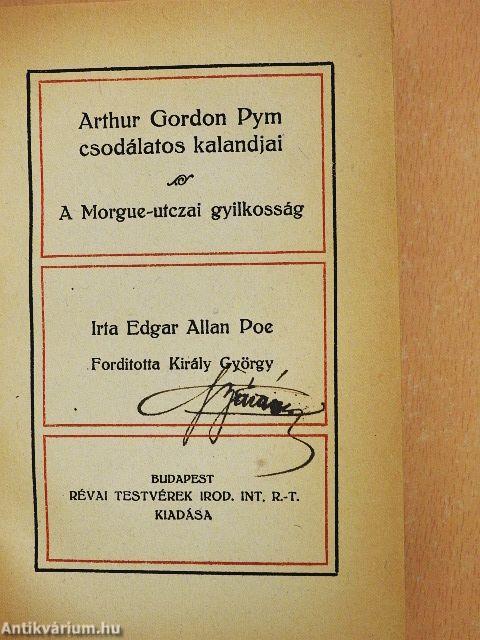 Arthur Gordon Pym
csodálatos kalandjai
A Morgue-utczai gyilkosság
Irta Edgar Allan Poe
Forditotta Király György
BUDAPEST
RÉVAI TESTVÉREK IROD. INT. R.-T.
KIADÁSA
Antikvárium.hu